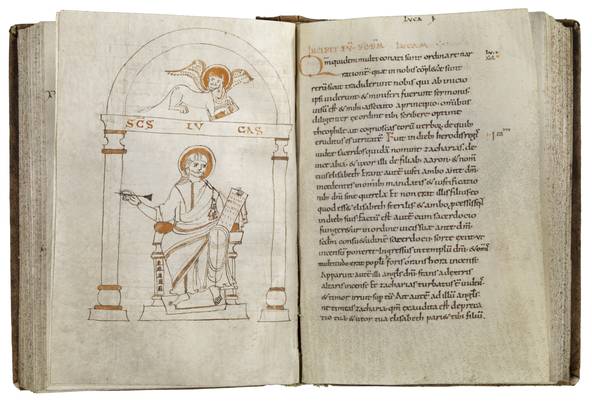 SCS LV CAS
LUCA I
INCIPIT EV SCDM LUCAM
Quidem multi conati sunt ordinare nar
rationē quae in nobis cōplete sunt
rerū sicut tradiderunt nobis qui ab inicio
ipsi uiderunt & ministri fuerunt sermonis
uisū est & mihi assecuto a principio omnib;
diligenter ex ordine tibi scribere optime
theophile ut cognoscas eorū uerborū de quib;
eruditus es ueritatē Fuit in dieb; herodis regis
iudeę sacerdos quidā nomine zacharias de
uice abia & uxor illi de filiab; aaron & nom̄
eius elisabeth Erant autē iusti ambo ante dm̄
incedentes in omnib; mandatis & iustificatio
nib; dnī sine querela Et non erat illis filius eo
quod esset elisabeth sterilis & ambo
in dieb; suis Factū est autē cum sacerdocio
fungeretur in ordine uicis suę ante dm̄
scdm consuetudinē sacerdocii sorte exiit ut
incensū poneret Ingressus in templū dnī & omis
multitudo erat popli foris orans hora incensi
Apparuit autē illi angls dnī stans a dextris
altaris incensi Et zacharias turbatus ē uidens
& timor irruit sup eū Ait autē ad illū angls
ne timeas zacharia qm̄ exaudita est depreca
tio tua & uxor tua elisabeth pari& tibi filiū